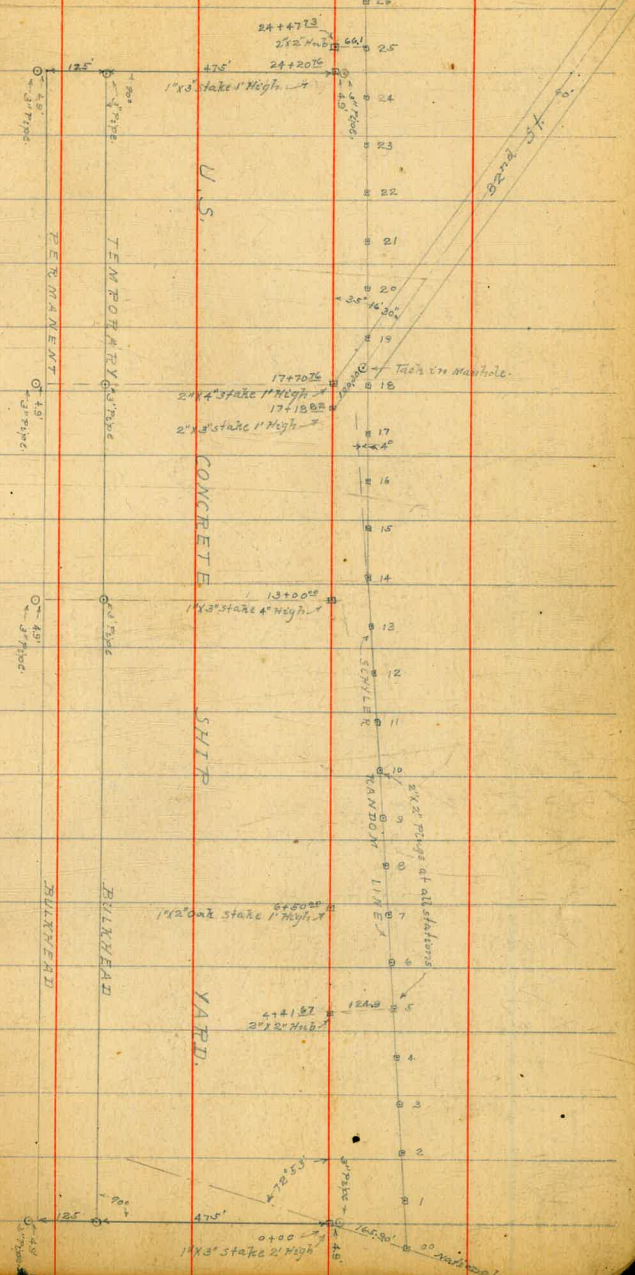 26
24+47 73
2"x2" Hub
66.1
25
125'
475'
24+20 76
1"x3" stake 1' High
90°
3" Pipe
4.9'
3" Pipe
4.9'
3" Pipe
24
23
22
21
20
19
18
17
16
15
14
13
12
11
10
9
8
7
6
5
4
3
2
1
0°
82nd St.
60'
35°-16'
30"
Tack in Manhole.
17+70 76
2"x4" stake 1' High
17+18 82
2"x3" stake 1' High
4°
4.9'
3" Pipe
3" Pipe
PERMANENT
TEMPORARY
U.S.
CONCRETE
SHIP
YARD.
13+00 00
1"x3" stake 4" High
4.9'
3" Pipe
3" Pipe
SCHYLER
RANDOM LINE
2"x2" Plugs at all stations
BULKHEAD
BULKHEAD
6+50 00
1"x2" Oak stake 1' High
4+41 67
2"x2" Hub
124.9
72°53'
3" Pipe
90°
125
475'
0+00
1"x3" stake 2' High
4.9'
165.90'
4.9'
3" Pipe